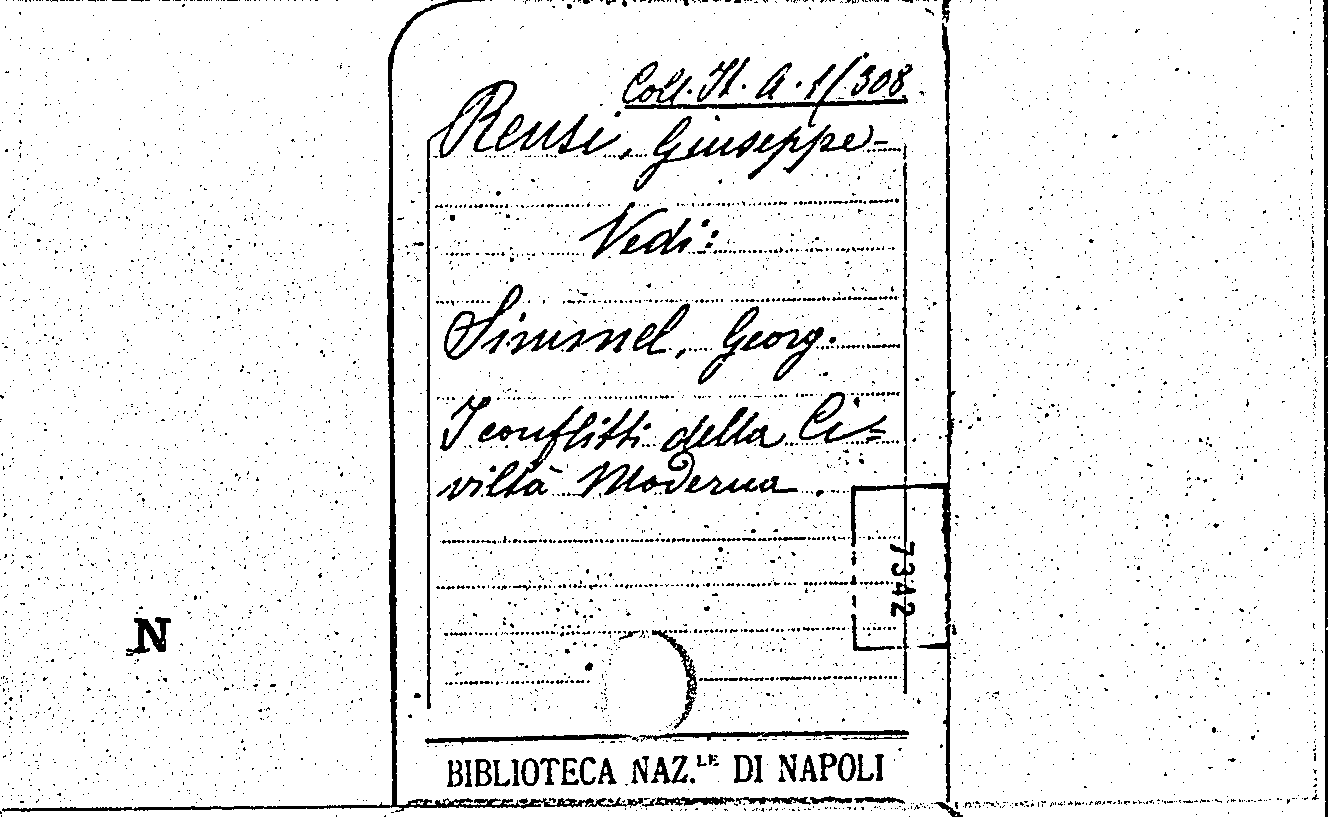 Coll. It. A. 1/308.
Rensi, Giuseppe-
Vedi:
Simmel, Georg.
I conflitti della Ci=
viltà Moderna.
7342
N
BIBLIOTECA NAZ.LE DI NAPOLI